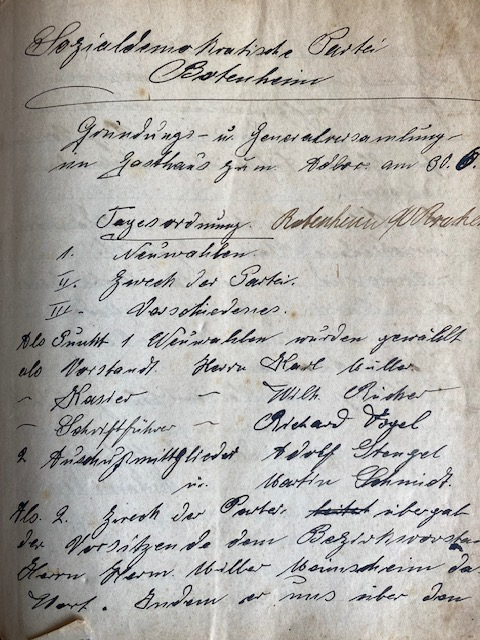 Sozialdemokratische Partei
Botenheim
Gründungs- u. Generalversamlung
im Gasthaus zum Adler am 30.
Tagesordnung. Botenheim
1. Neuwahlen.
II. Zweck der Partei.
III. Verschiedenes.
Als Punkt 1 Neuwahlen wurden gewählt
als Vorstandt Herrn Karl Müller.
" Kasier " Wilh. Rücker
" Schriftführer " Richard Vogel
2 Ausschußmittglieder Adolf Stengel
u. Martin Schmidt.
Als. 2. Zweck der Partei übergab
der Vorsitzende dem Bezirksvorsta
Herrn Herm. Miller Meimsheim da
Wort. Indem er uns über den